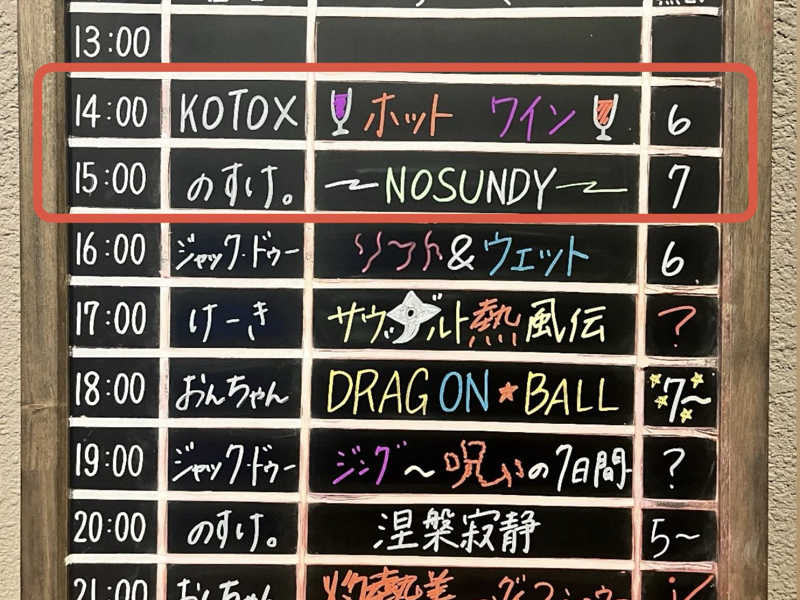 13:00
14:00 KOTOX ホット ワイン 6
15:00 のすけ。 ~NOSUNDY~ 7
16:00 ジャック・ドゥー ソフト&ウェット 6
17:00 けーき サウッダルト熱風伝 ?
18:00 おんちゃん DRAGON★BALL 7~
19:00 ジャック・ドゥー ジング~呪いの7日間 ?
20:00 のすけ。 涅槃寂静 5~
21:00 おんちゃん